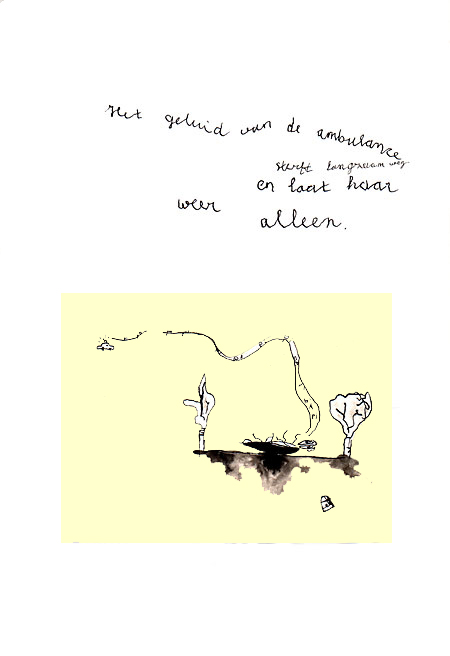 Het geluid van de ambulance
sterft langzaam weg
en laat haar
weer alleen.